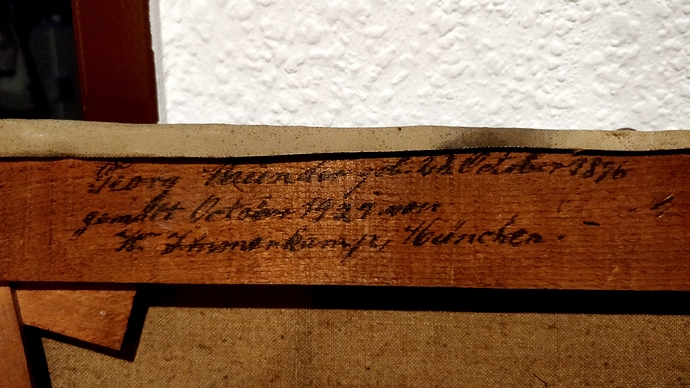 Georg geb. 24. October 1896
gemalt October 1929 von
W. Zimmerkamp, München.